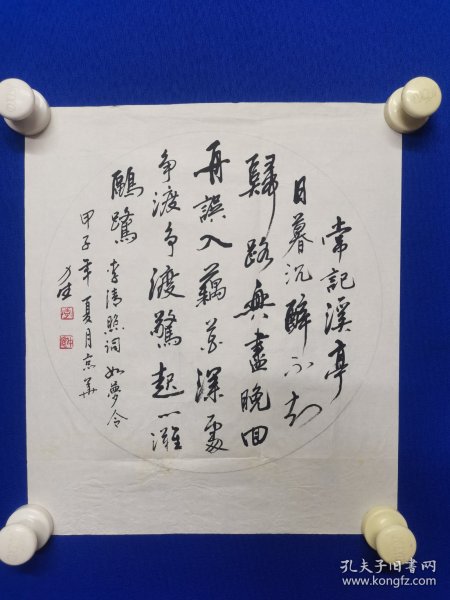 常記溪亭
日暮沉醉不知
歸路興盡晚回
舟誤入藕花深處
争渡争渡驚起一灘
鷗鷺 李清照詞如夢令
甲子年夏月京華
孔夫子旧书网
www.kongfz.com